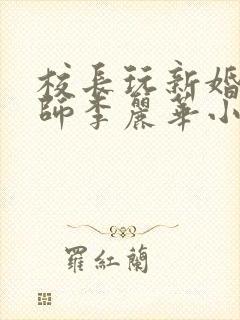 校長玩新婚
師李麗華小
羅紅蘭